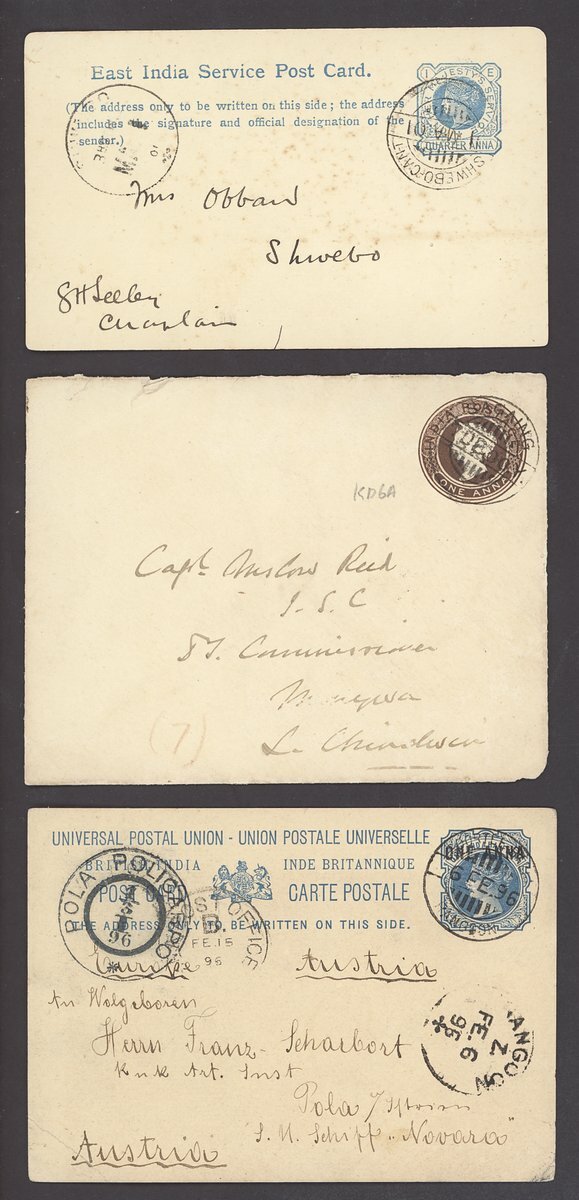 East India Service Post Card.
(The address only to be written on this side; the address
includes the signature and official designation of the
sender.)
I E
HER MAJESTY'S SERVICE
QUARTER ANNA
SHWEBO-CANT
01
SHWEBO
M
01
Mrs Obbard
Shwebo
G H Seeley
Chaplain
INDIA POSTAGE
ONE ANNA
SAGAING
DE
KD6A
Capt. Onslow Reid
I. S. C
Dy. Commissioner
Monywa
L. Chindwin
(7)
UNIVERSAL POSTAL UNION - UNION POSTALE UNIVERSELLE
BRITISH INDIA INDE BRITANNIQUE
POST CARTE POSTALE
THE ADDRESS ONLY TO BE WRITTEN ON THIS SIDE.
ONE ANNA
6 FE. 96
POLA POLICARPO
96
SEA POST OFFICE
B
FE. 15
96
Europe Austria
RANGOON
Z
FE. 6
96
An Wolgeboren
Herrn Franz Scharbort
K u K Art. Inst
Pola / Istrien
S. M. Schiff "Novara"
Austria